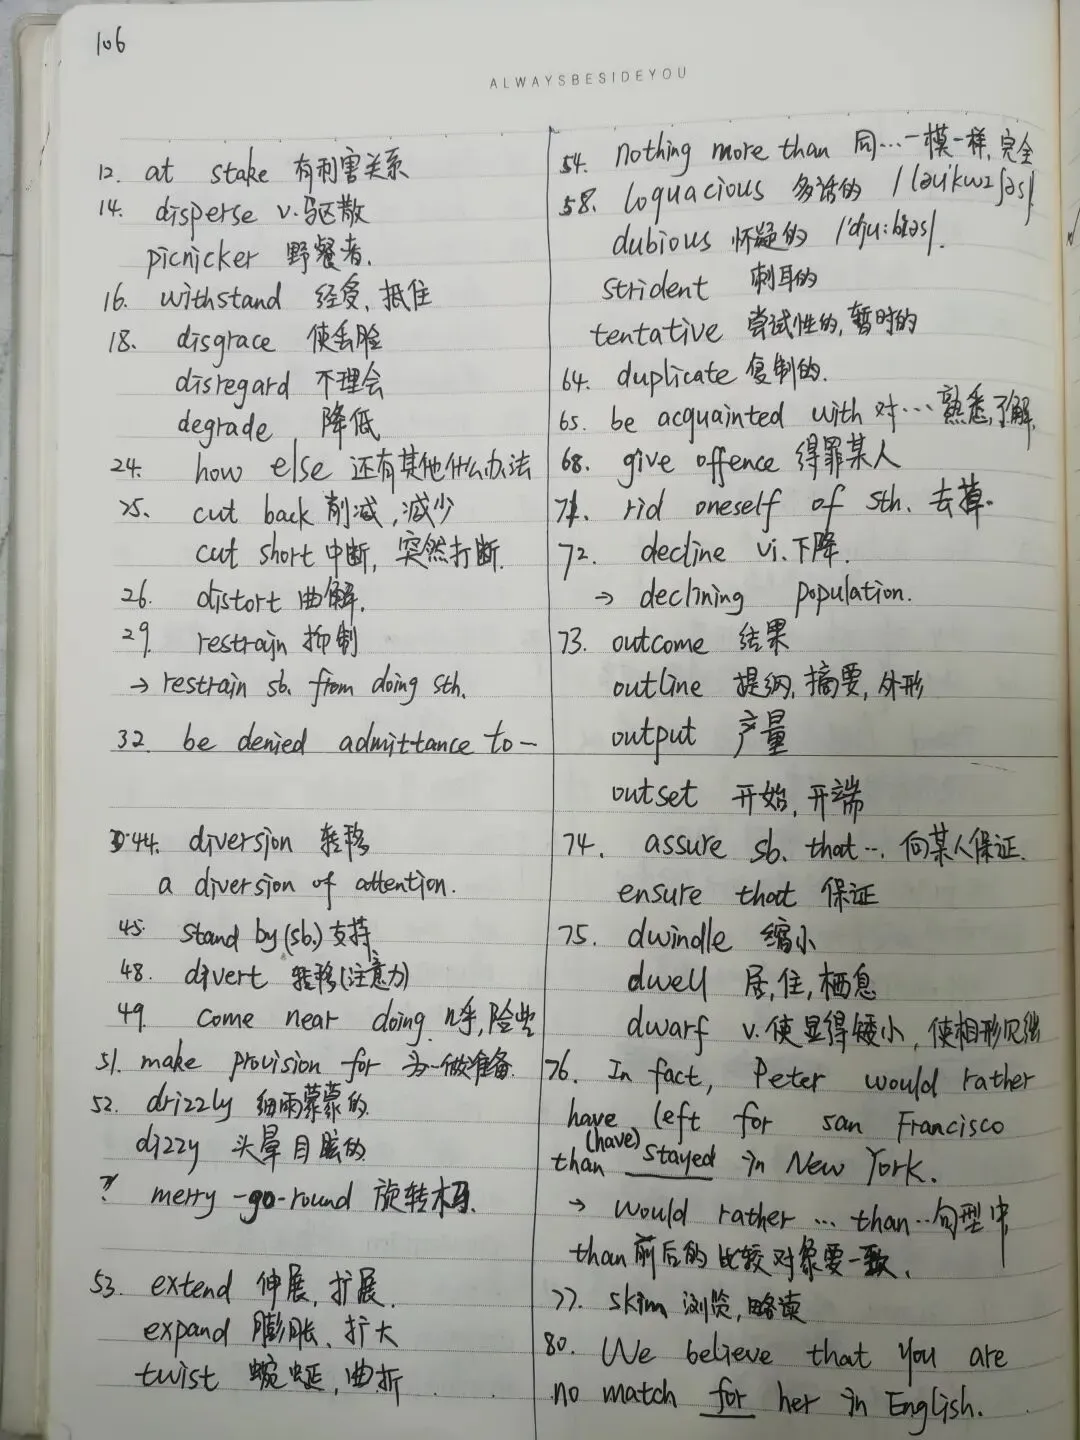 106
ALWAYSBESIDEYOU
12. at stake 有利害关系
14. disperse v.驱散
picnicker 野餐者.
16. withstand 经受,抵住
18. disgrace 使丢脸
disregard 不理会
degrade 降低
24. how else 还有其他什么办法
25. cut back 削减,减少
cut short 中断,突然打断.
26. distort 曲解.
29. restrain 抑制
→ restrain sb. from doing sth.
32. be denied admittance to—
44. diversion 转移
a diversion of attention.
45. stand by (sb.) 支持
48. divert 转移(注意力)
49. come near doing 几乎,险些
51. make provision for 为一做准备
52. drizzly 细雨蒙蒙的
dizzy 头晕目眩的
merry-go-round 旋转木马.
53. extend 伸展,扩展.
expand 膨胀、扩大
twist 蜿蜒,曲折
54. nothing more than 同…一模一样,完全
58. loquacious 多话的 /ləʊˈkwɪʃəs/
dubious 怀疑的 /ˈdju:bɪəs/.
strident 刺耳的
tentative 尝试性的,暂时的
64. duplicate 复制的.
65. be acquainted with 对…熟悉,了解.
68. give offence 得罪某人
71. rid oneself of sth. 去掉.
72. decline vi.下降.
→ declining population.
73. outcome 结果
outline 提纲,摘要,外形
output 产量
outset 开始,开端
74. assure sb. that… 向某人保证.
ensure that 保证
75. dwindle 缩小
dwell 居,住,栖息
dwarf v.使显得矮小,使相形见绌
76. In fact, Peter would rather
have left for san Francisco
(have)
than stayed in New York.
→ would rather … than…句型中
than前后的比较对象要一致.
77. skim 浏览,略读
80. We believe that you are
no match for her in English.